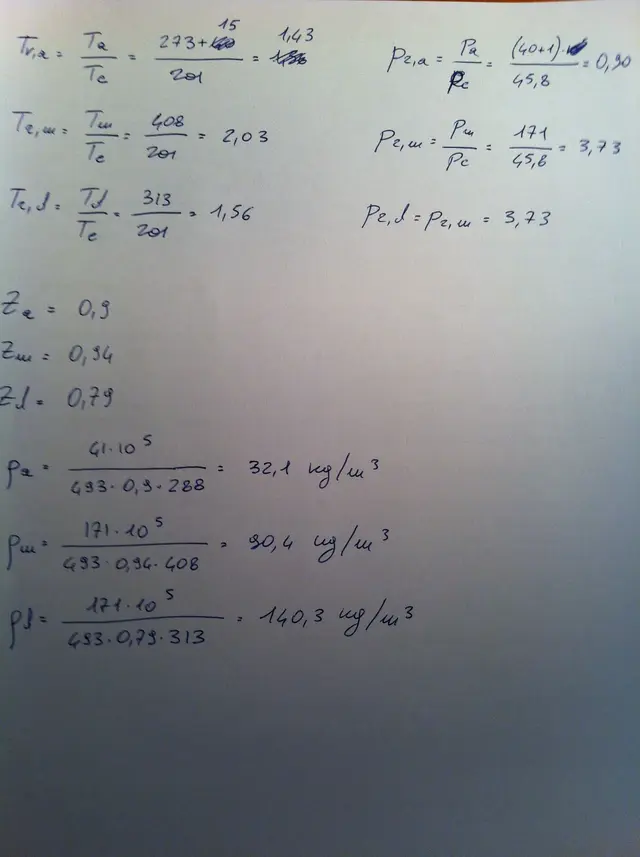 Tr,a = Ta/Tc = (273+15)/201 = 1,43
pr,a = Pa/Pc = (40+1)/45,8 = 0,90
Tr,m = Tm/Tc = 408/201 = 2,03
pr,m = Pm/Pc = 171/45,8 = 3,73
Tr,l = Tl/Tc = 313/201 = 1,56
pr,l = pr,m = 3,73
Za = 0,9
Zm = 0,94
Zl = 0,79
ρa = 41·10⁵/(493·0,9·288) = 32,1 kg/m³
ρm = 171·10⁵/(493·0,94·408) = 90,4 kg/m³
ρl = 171·10⁵/(493·0,79·313) = 140,3 kg/m³